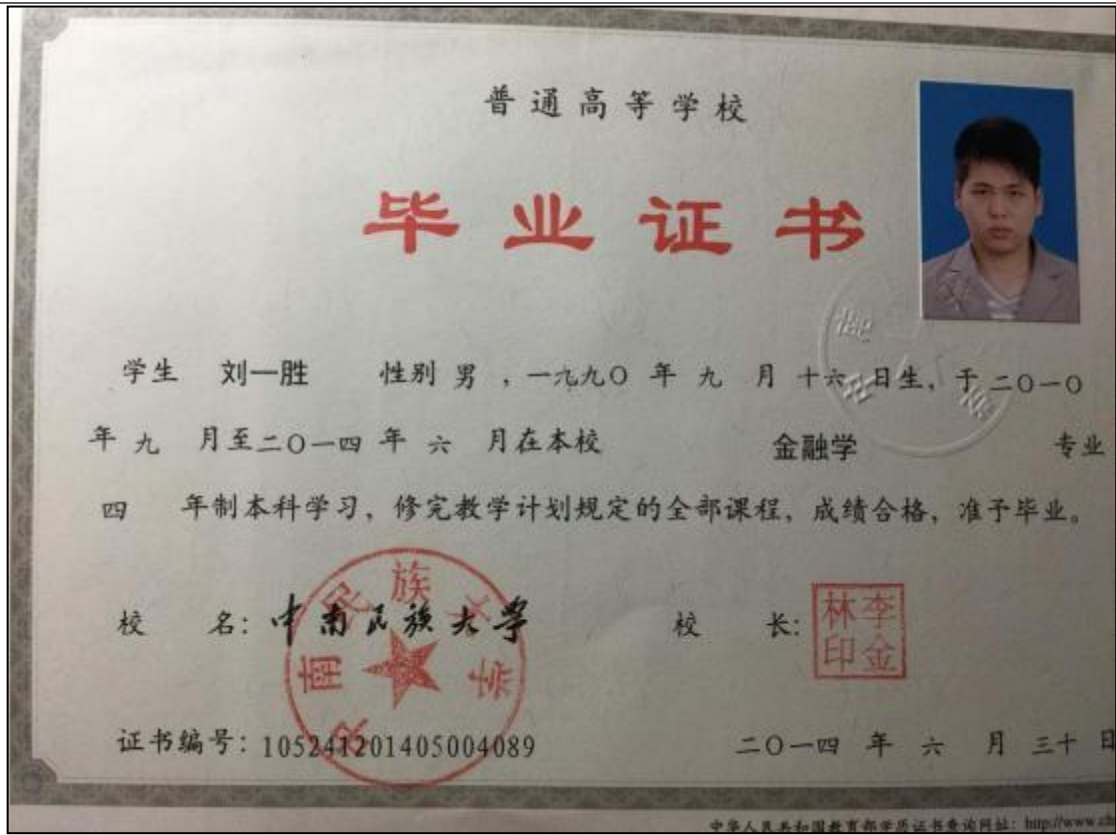 普通高等学校
毕业证书
学生 刘一胜 性别 男 ，一九九〇 年 九 月 十六 日生，于 二〇一〇
年 九 月至二〇一四 年 六 月在本校 金融学 专业
四 年制本科学习，修完教学计划规定的全部课程，成绩合格，准予毕业。
校 名：中南民族大学 校 长：李金林印
证书编号：105241201405004089 二〇一四 年 六 月 三十 日
中华人民共和国教育部学历证书查询网址：http://www.ch